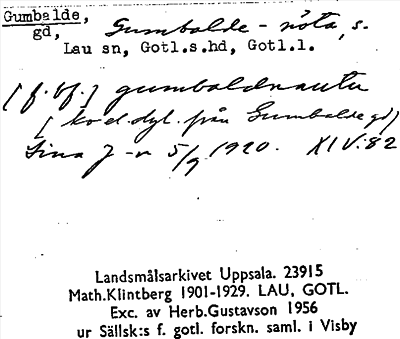 Gumbalde, Gumbalde-nöta, s.
gd,
Lau sn, Gotl.s.hd, Gotl.l.
[f. bf.] gumbaldnautu
[ko el. dyl. från Gumbalde gd]
5/9 1920. XIV:82
Landsmålsarkivet Uppsala. 23915
Math.Klintberg 1901-1929. LAU, GOTL.
Exc. av Herb.Gustavson 1956
ur Sällsk:s f. gotl. forskn. saml. i Visby